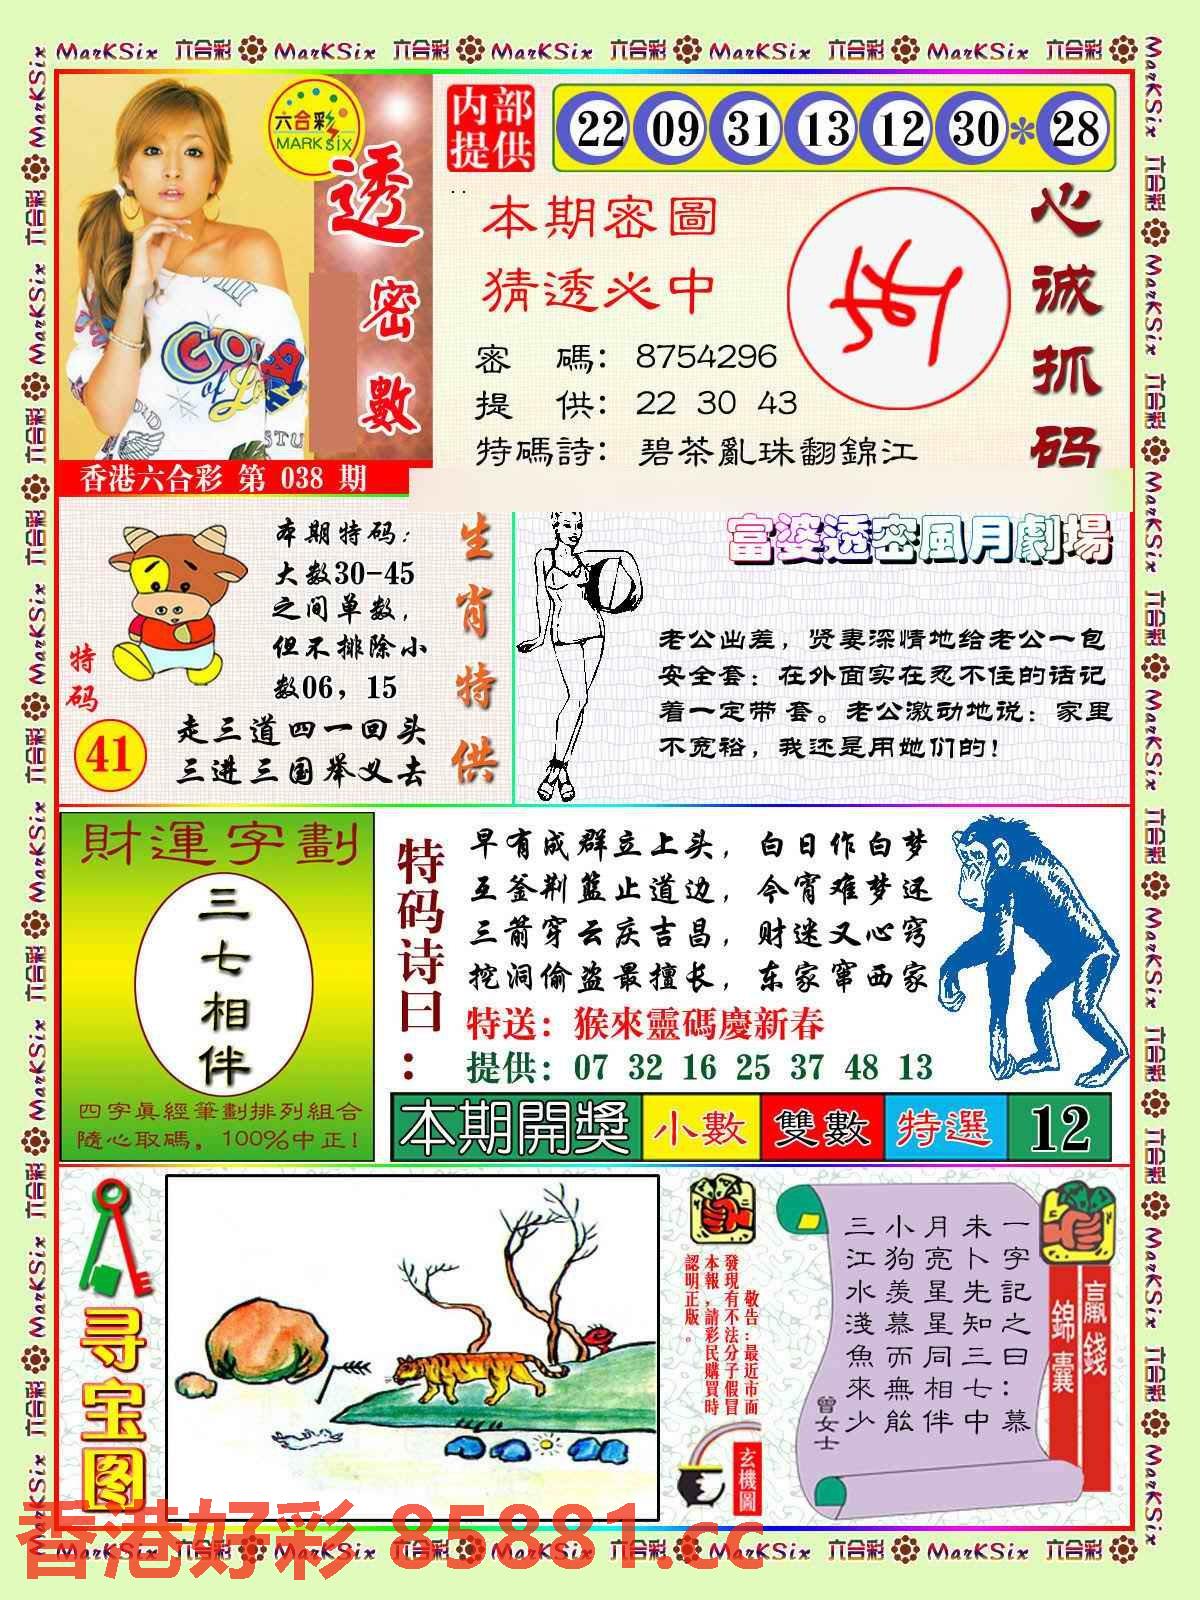 MarKSix 六合彩 MarKSix 六合彩 MarKSix 六合彩 MarKSix 六合彩 MarKSix 六合彩
六合彩
MARK SIX
透密數
香港六合彩 第 038 期
内部
提供
22 09 31 13 12 30 * 28
本期密圖
猜透必中
密 碼: 8754296
提 供: 22 30 43
特碼詩: 碧茶亂珠翻錦江
心诚抓码
本期特码:
大数30-45
之间单数,
但不排除小
数06, 15
特码
41
走三道四一回头
三进三国举义去
生肖特供
富婆透密風月劇場
老公出差, 贤妻深情地给老公一包
安全套: 在外面实在忍不住的话记
着一定带 套。老公激动地说: 家里
不宽裕, 我还是用她们的!
財運字劃
三七相伴
四字眞經筆劃排列組合
隨心取碼, 100%中正!
特码诗曰:
早有成群立上头, 白日作白梦
互釜荆篮止道边, 今宵难梦还
三箭穿云庆吉昌, 财迷又心窍
挖洞偷盗最擅长, 东家窜西家
特送: 猴來靈碼慶新春
提供: 07 32 16 25 37 48 13
本期開獎 小數 雙數 特選 12
寻宝图
敬告:最近市面
發現有不法分子假冒
本報,請彩民購買時
認明正版。
玄機圖
贏錢
錦囊
一字記之曰:慕
未卜先知三七中
月亮星星同相伴
小狗羨慕而無能
三江水淺魚來少
曾女士
香港好彩 85881.cc
MarKSix 六合彩 MarKSix 六合彩 MarKSix 六合彩 MarKSix 六合彩 MarKSix 六合彩